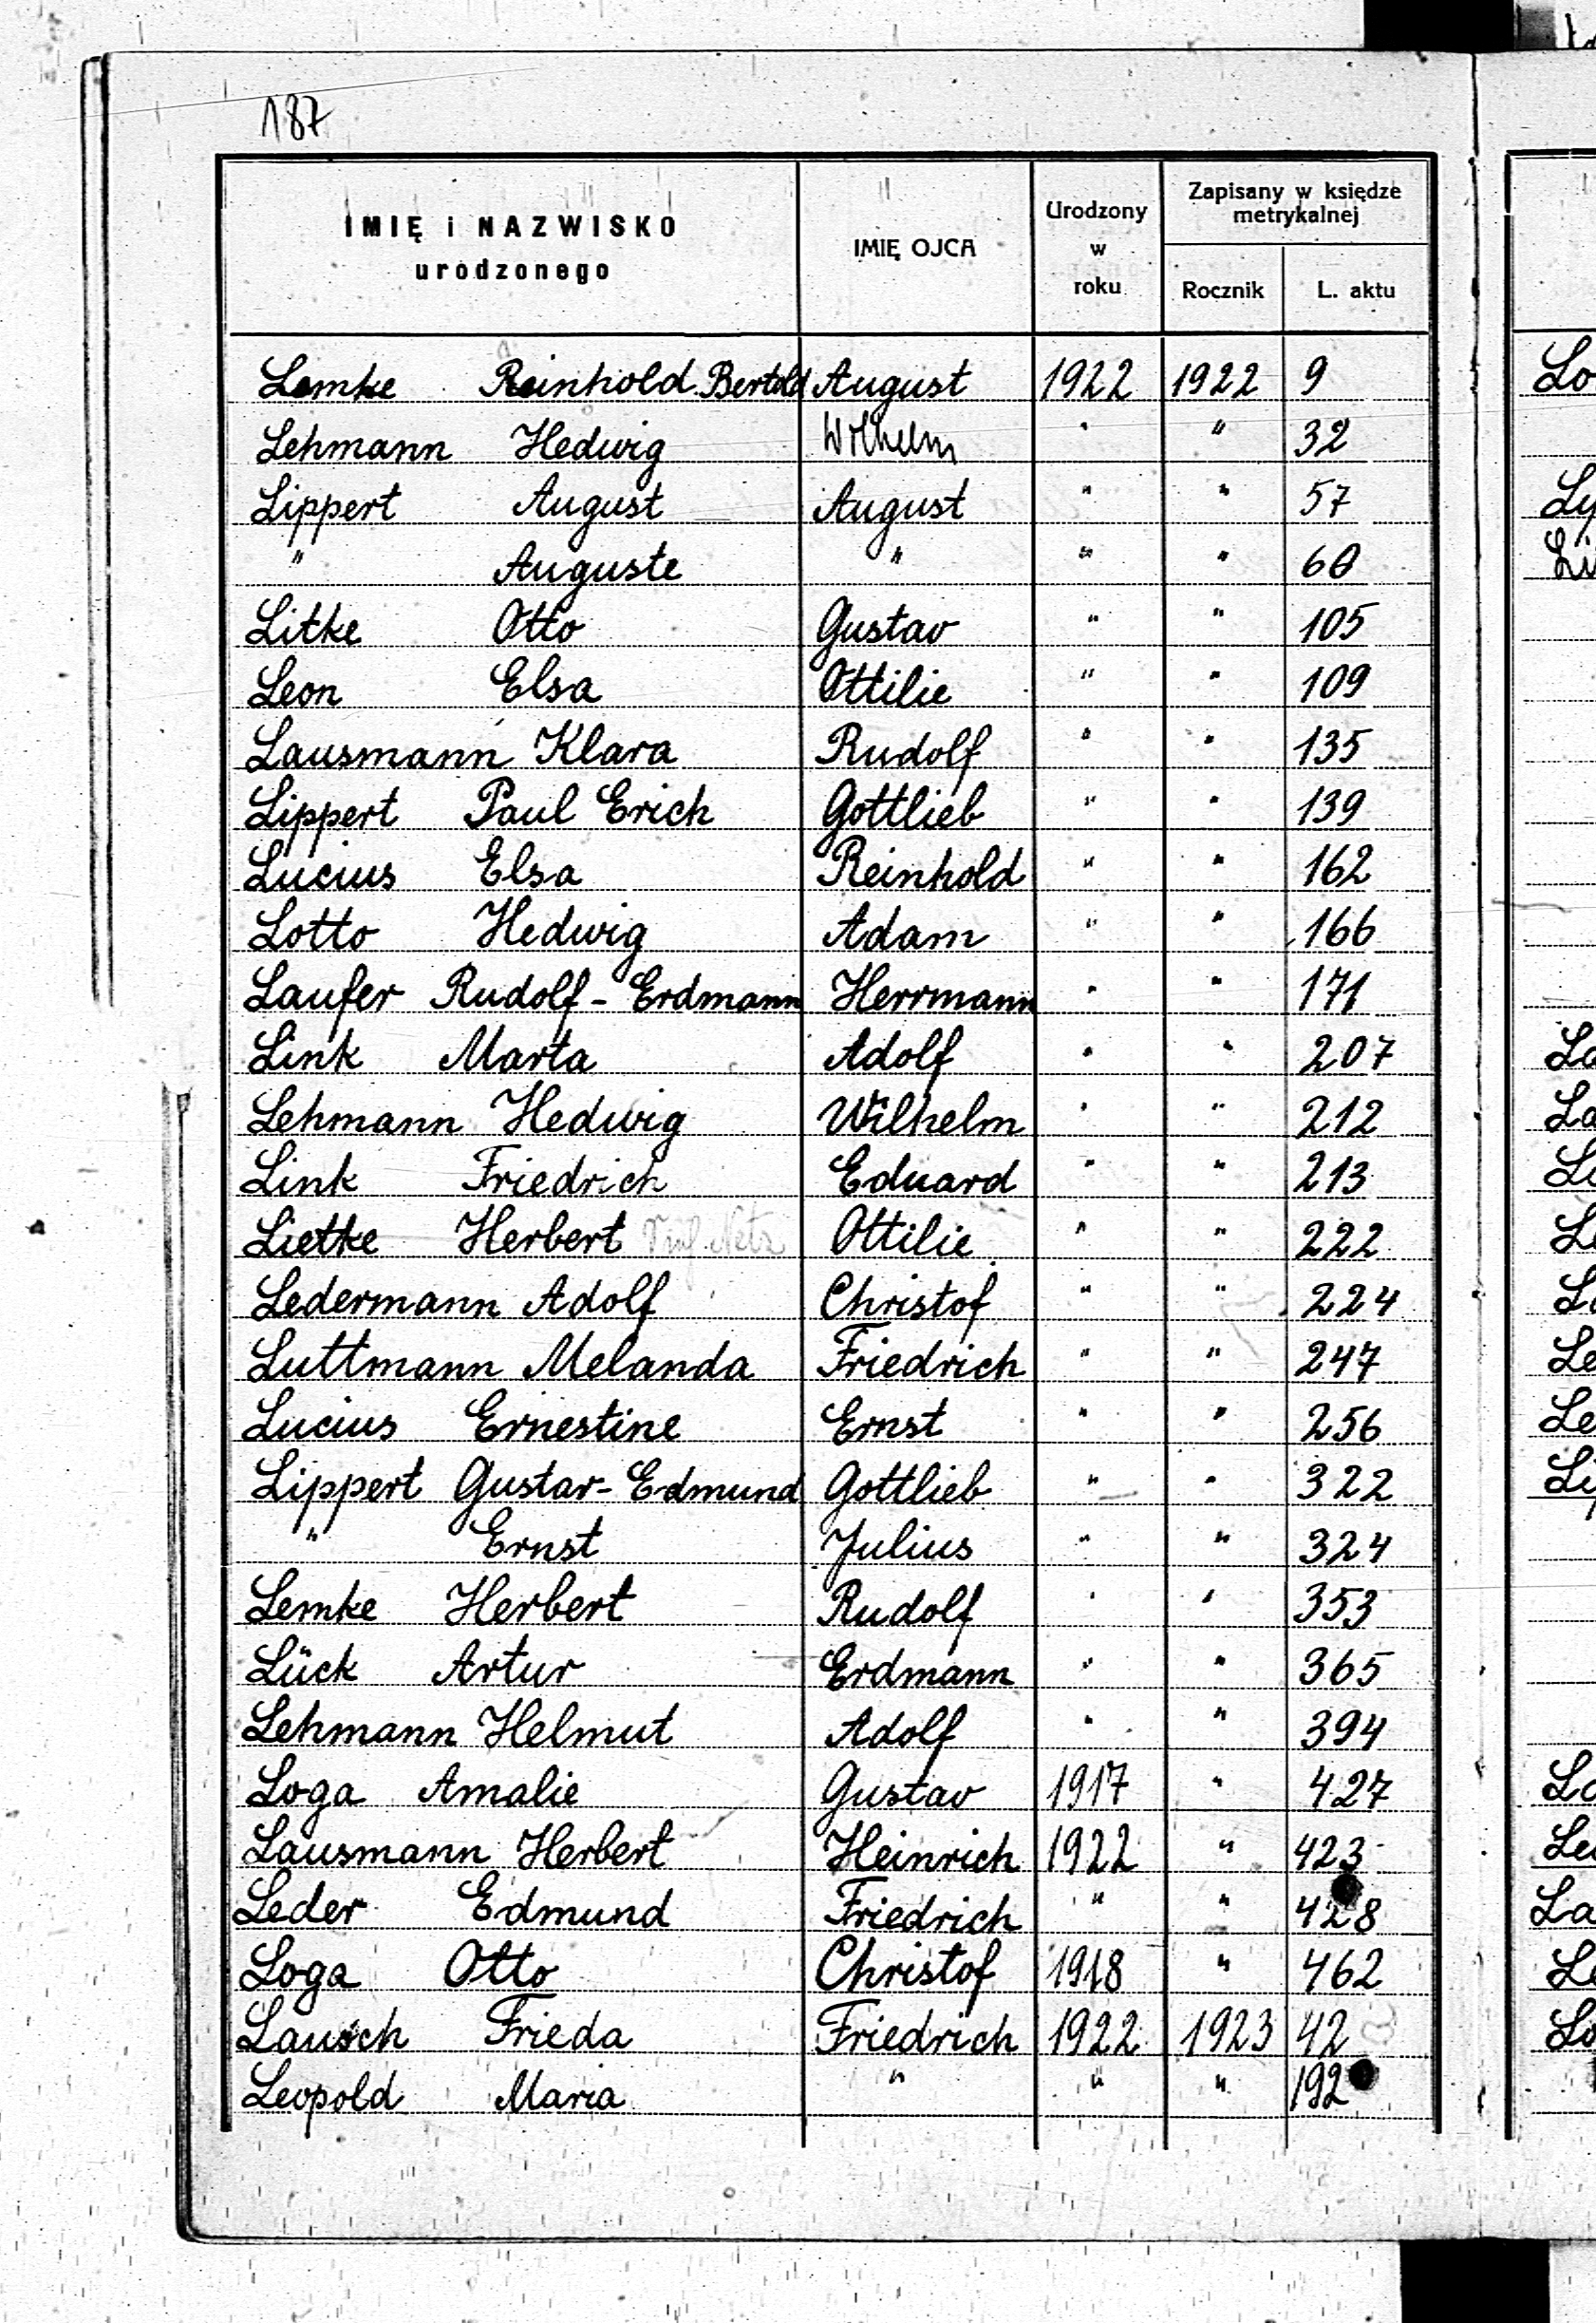 187
IMIĘ i NAZWISKO urodzonego | IMIĘ OJCA | Urodzony w roku | Zapisany w księdze metrykalnej
Rocznik | L. aktu
Lemke Reinhold Bertold August 1922 1922 9
Lehmann Hedwig Wilhelm " " 32
Lippert August August " " 57
" Auguste " " " 60
Litke Otto Gustav " " 105
Leon Elsa Ottilie " " 109
Lausmann Klara Rudolf " " 135
Lippert Paul Erich Gottlieb " " 139
Lucius Elsa Reinhold " " 162
Lotto Hedwig Adam " " 166
Laufer Rudolf-Erdmann Herrmann " " 171
Link Marta Adolf " " 207
Lehmann Hedwig Wilhelm " " 212
Link Friedrich Eduard " " 213
Lietke Herbert Ottilie " " 222
Ledermann Adolf Christof " " 224
Luttmann Melanda Friedrich " " 247
Lucius Ernestine Ernst " " 256
Lippert Gustav-Edmund Gottlieb " " 322
" Ernst Julius " " 324
Lemke Herbert Rudolf " " 353
Lück Artur Erdmann " " 365
Lehmann Helmut Adolf " " 394
Loga Amalie Gustav 1917 " 427
Lausmann Herbert Heinrich 1922 " 423
Leder Edmund Friedrich " " 428
Loga Otto Christof 1918 " 462
Lausch Frieda Friedrich 1922 1923 42
Leopold Maria " " " 192